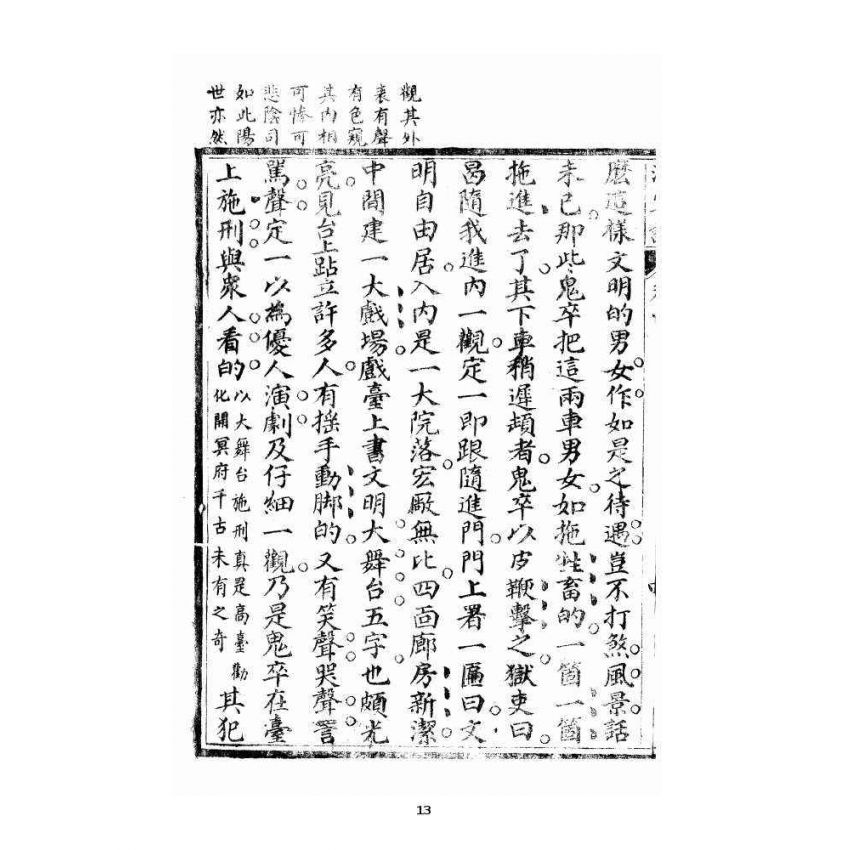 觀其外
裏有聲
有色窺
其内相
可慘可
悲陰司
如此陽
世亦然
麽這樣文明的男女作如是之待遇豈不打煞風景話
未已那些鬼卒把這兩車男女如拖牲畜的一箇一箇
拖進去了其下車稍遲頓者鬼卒以皮鞭擊之獄吏曰
曷隨我進内一觀定一即跟隨進門門上署一匾曰文
明自由居入内是一大院落宏厰無比四面廊房新潔
中間建一大戲場戲臺上書文明大舞台五字也頗光
亮見台上跕立許多人有搖手動脚的又有笑聲哭聲詈
罵聲定一以為優人演劇及仔細一觀乃是鬼卒在臺
上施刑與衆人看的以大舞台施刑真是高臺勸化開冥府千古未有之奇其犯
13